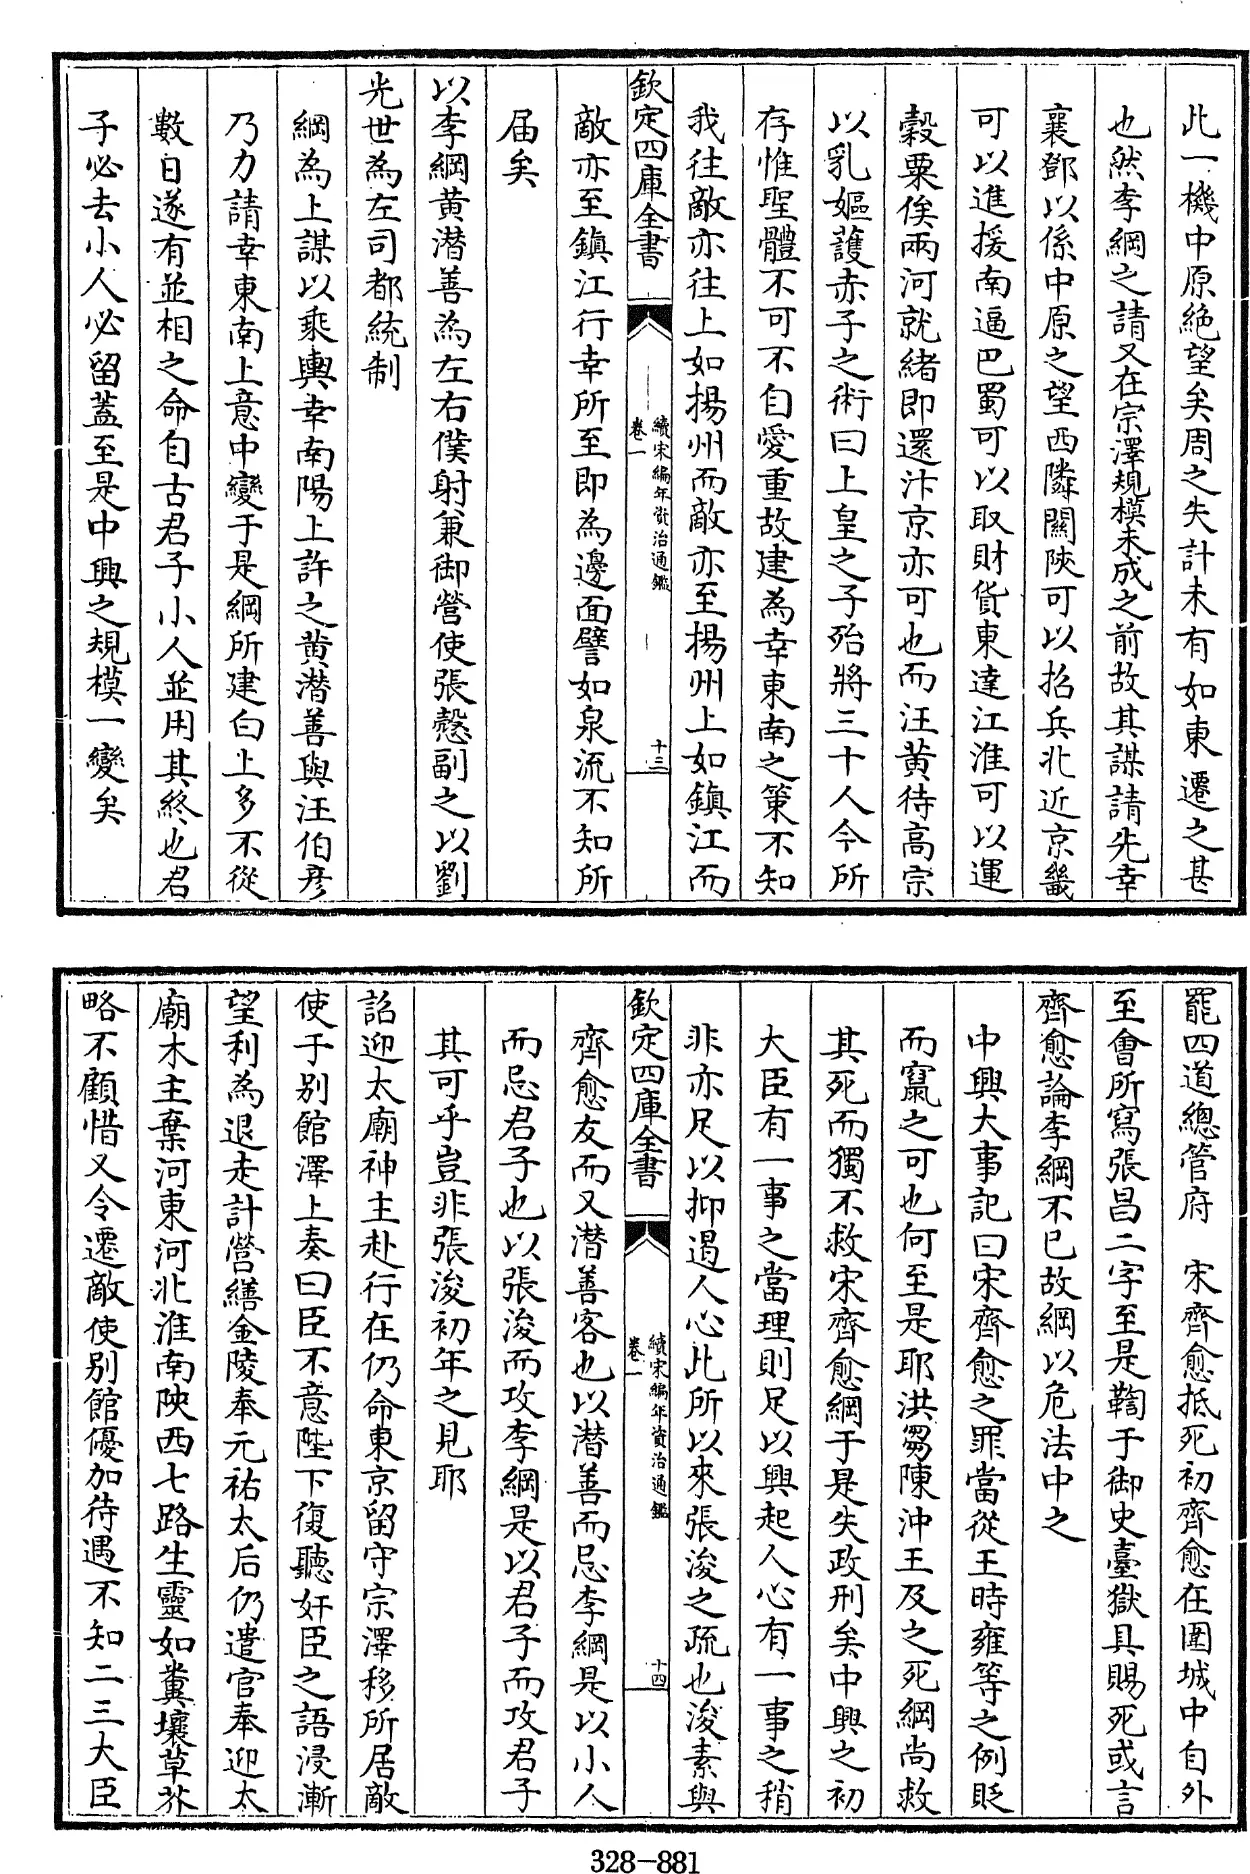 此一機中原絶望矣周之失計未有如東遷之甚
也然李綱之請又在宗澤規模未成之前故其謀請先幸
襄鄧以係中原之望西隣關陜可以招兵北近京畿
可以進援南逼巴蜀可以取財貨東達江淮可以運
穀粟俟兩河就緒即還汴京亦可也而汪黄待高宗
以乳嫗護赤子之術曰上皇之子殆將三十人今所
存惟聖體不可不自愛重故建為幸東南之策不知
我往敵亦往上如揚州而敵亦至揚州上如鎮江而
欽定四庫全書
續宋編年資治通鑑
卷一
十三
敵亦至鎮江行幸所至即為邊面譬如泉流不知所
届矣
以李綱黄潛善為左右僕射兼御營使張慤副之以劉
光世為左司都統制
綱為上謀以乘輿幸南陽上許之黄潛善與汪伯彦
乃力請幸東南上意中變于是綱所建白上多不從
數日遂有並相之命自古君子小人並用其終也君
子必去小人必留蓋至是中興之規模一變矣
罷四道總管府 宋齊愈抵死初齊愈在圍城中自外
至會所寫張昌二字至是鞫于御史臺獄具賜死或言
齊愈論李綱不已故綱以危法中之
中興大事記曰宋齊愈之罪當從王時雍等之例貶
而竄之可也何至是耶洪芻陳沖王及之死綱尚救
其死而獨不救宋齊愈綱于是失政刑矣中興之初
大臣有一事之當理則足以興起人心有一事之稍
非亦足以抑遏人心此所以來張浚之疏也浚素與
欽定四庫全書
續宋編年資治通鑑
卷一
十四
齊愈友而又潛善客也以潛善而忌李綱是以小人
而忌君子也以張浚而攻李綱是以君子而攻君子
其可乎豈非張浚初年之見耶
詔迎太廟神主赴行在仍命東京留守宗澤移所居敵
使于别館澤上奏曰臣不意陛下復聽奸臣之語浸漸
望利為退走計營繕金陵奉元祐太后仍遣官奉迎太
廟木主棄河東河北淮南陜西七路生靈如糞壤草芥
略不顧惜又令遷敵使别館優加待遇不知二三大臣
328-881